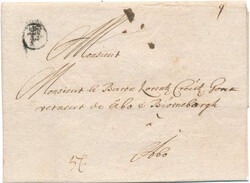 9
Monsieur
Monsieur le Baron Lorentz Creutz Gouv
verneur de Abo & Biorneborgh
à
Abo